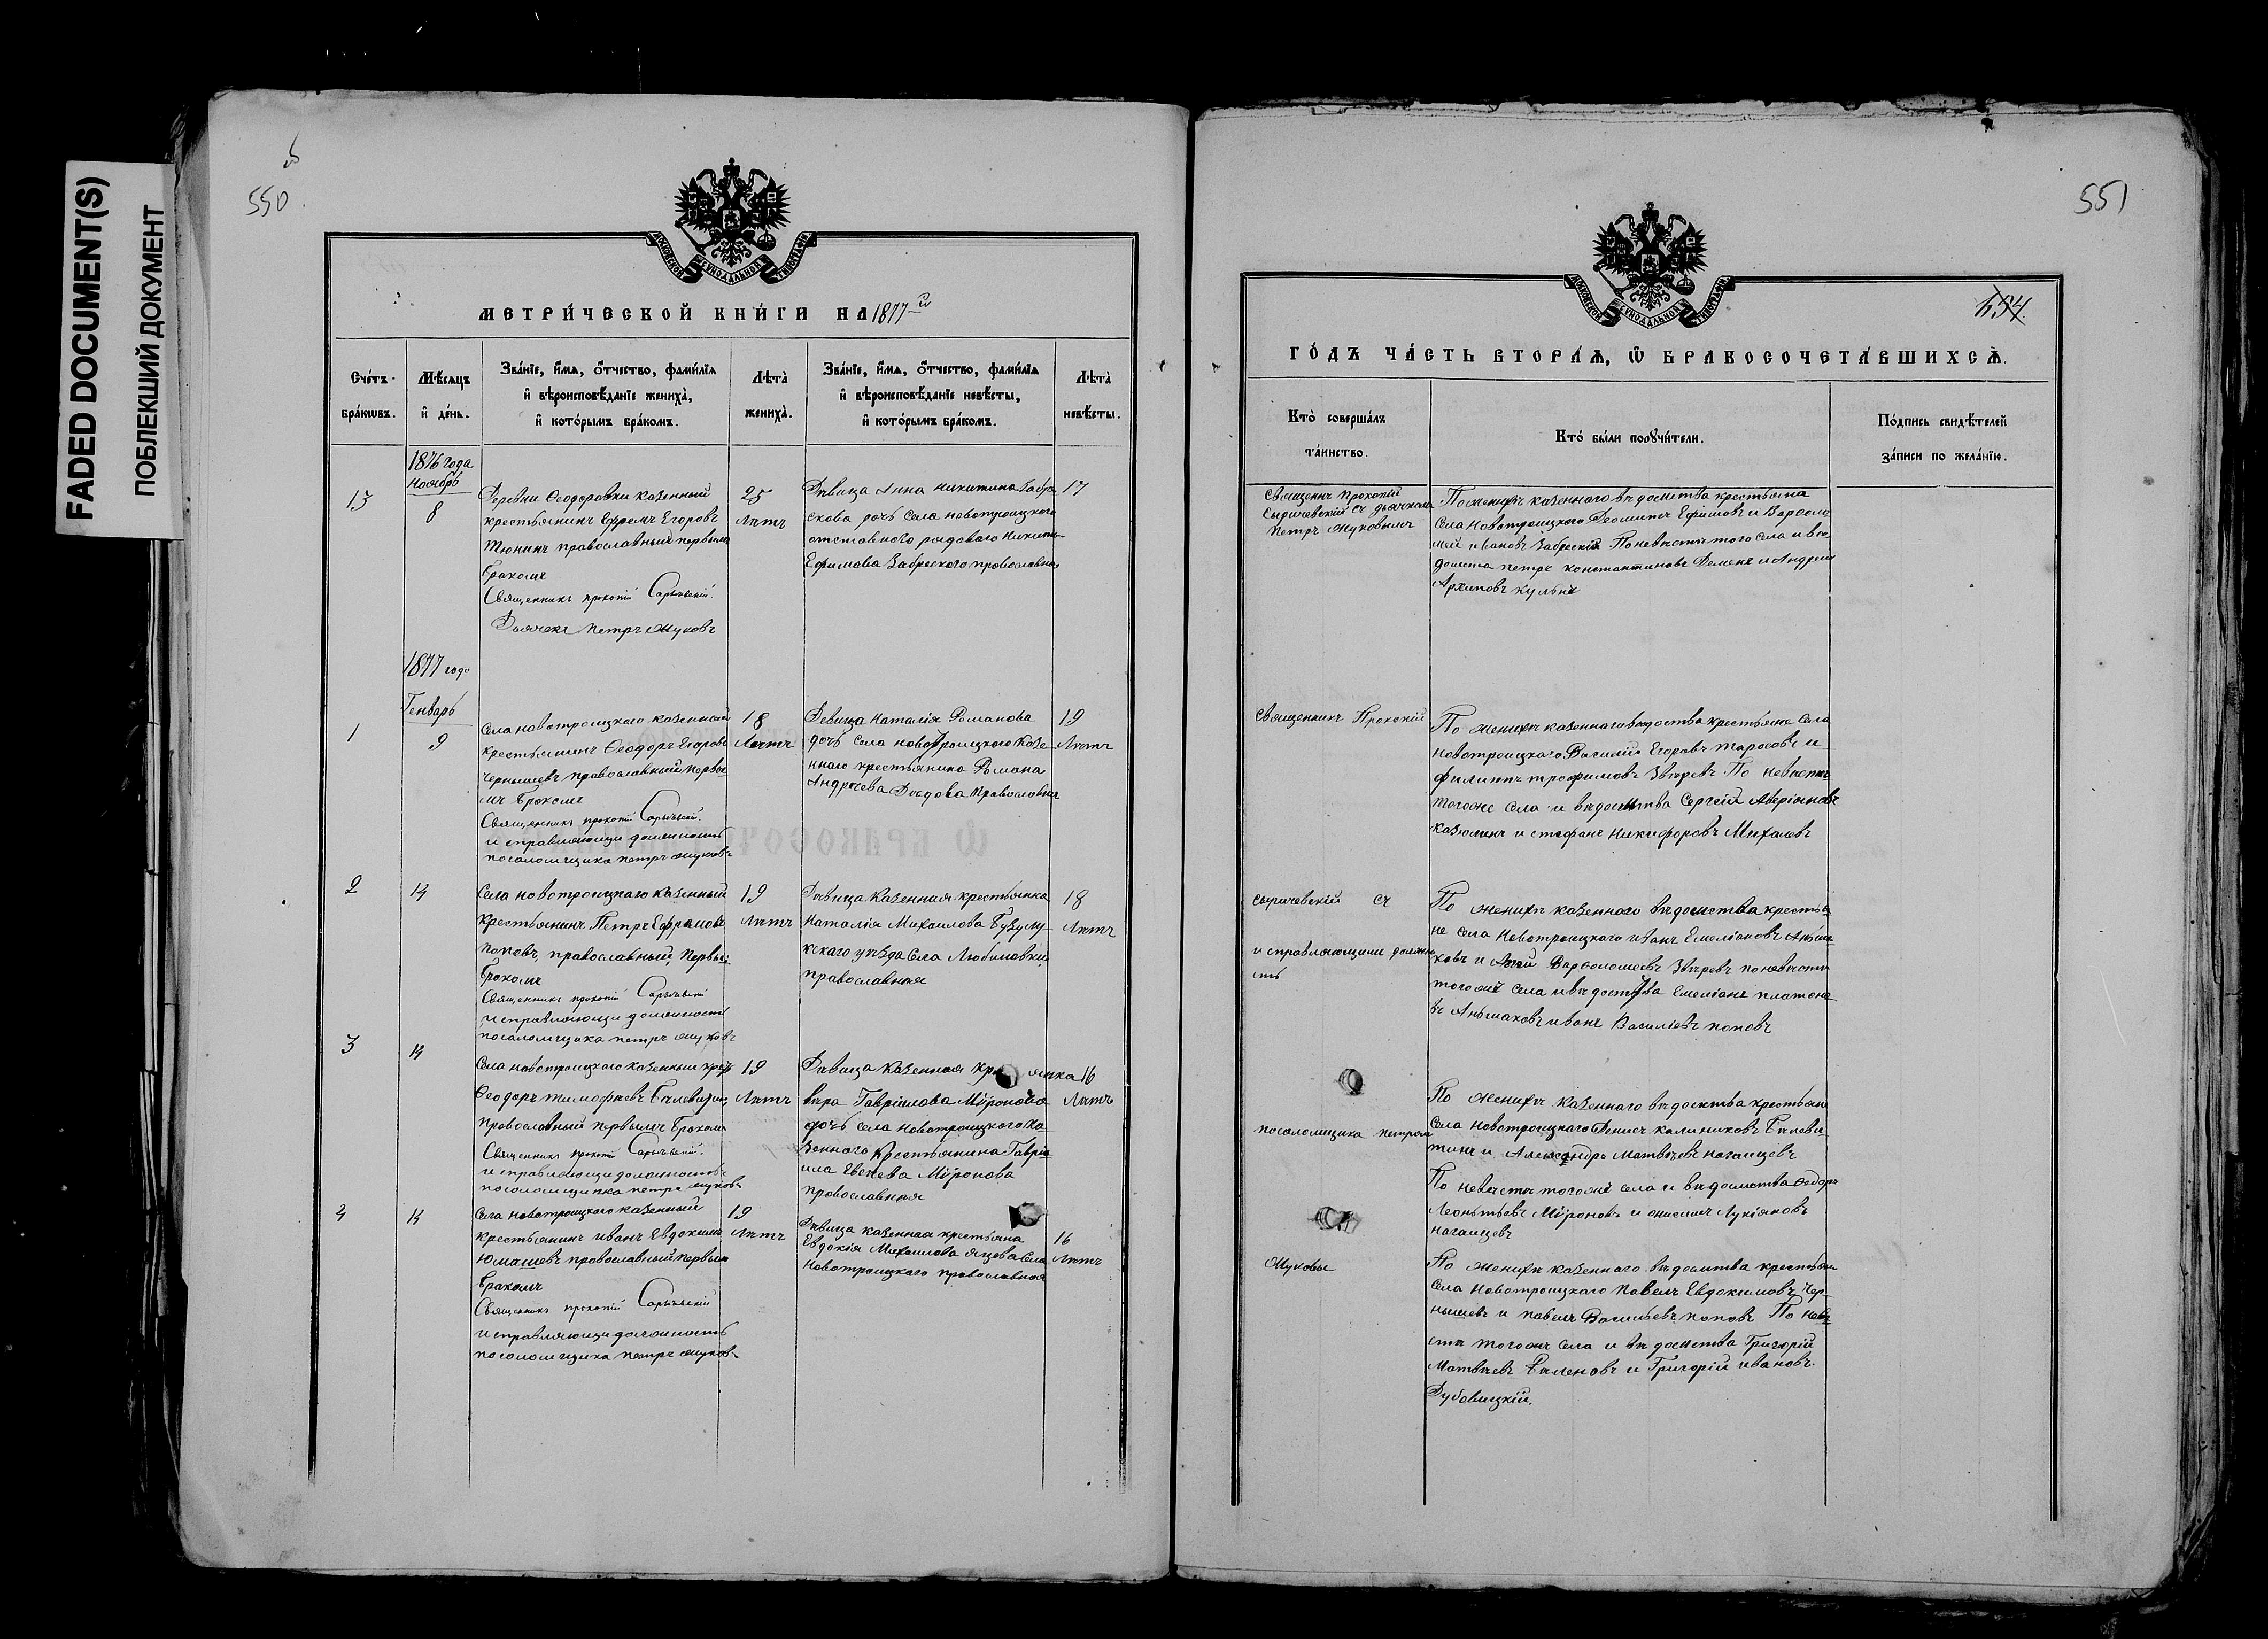 FADED DOCUMENT(S)
ПОБЛЕКШИЙ ДОКУМЕНТ
550
МОСКОВСКОЙ СѴНОДАЛЬНОЙ ТИПОГРАФІИ
МЕТРИ́ЧЕСКОЙ КНИ́ГИ НА 1877 й
Сче́тъ бра́кѡвъ.
Мѣ́сѧцъ и҆ де́нь.
Зва́нїе, и҆́мѧ, ѻ҆́тчество, фами́лїѧ
и҆ вѣроисповѣ́данїе жениха̀,
и҆ кото́рымъ бра́комъ.
Лѣта̀ жениха̀.
Зва́нїе, и҆́мѧ, ѻ҆́тчество, фами́лїѧ
и҆ вѣроисповѣ́данїе невѣ́сты,
и҆ кото́рымъ бра́комъ.
Лѣта̀ невѣ́сты.
1876 года
Ноябрь
13
8
Деревни Ѳеодоровки казенный
крестьянинъ Ефремъ Егоровъ
Тюнинъ православный первымъ
бракомъ
Священникъ Прокопій Сарычевскій.
Дьячекъ Петръ Жуковъ
25
Лѣтъ
Дѣвица Анна Никитина Забре
скова дочь села Новотроицкого
отставного рядового Никиты
Ефимова Забреского православная
17
1877 года
Генварь
1
9
Села Новотроицкаго казенный
крестьянинъ Ѳеодоръ Егоровъ
Чернышевъ православный первы
мъ бракомъ
Священникъ Прокопій Сарычевскій.
и справляющи должность
псаломщика Петръ Жуковъ
18
Лѣтъ
Девица Наталія Романова
дочь села Новотроицкого казе
ннаго крестьянина Романа
Андреева Дѣдова православная
19
Лѣтъ
2
14
Села Новотроицкаго казенный
крестьянинъ Петръ Ефремовъ
Поповъ, православный, первы
бракомъ
Священникъ Прокопій Сарычевскій
и справляющи должность
псаломщика Петръ Жуковъ
19
Лѣтъ
Дѣвица казенная крестьянка
Наталія Михаилова Бузулу
кскаго уѣзда села Любимовки
православная
18
Лѣтъ
3
14
Села Новотроицкаго казенный
Ѳеодоръ Тимофѣевъ
православный первымъ бракомъ
Священникъ Прокопій Сарычевскій.
и справляющи должность
псаломщика Петръ Жуковъ
19
Лѣтъ
Дѣвица казенная кр янка
Вѣра Гавріилова Мѵронова
дочь села Новотроицкого ка
зенного крестьянина Гаврі
ила Мѵронова
православная
16
Лѣтъ
4
14
Села Новотроицкаго казенный
крестьянинъ Иванъ Евдокимовъ
Юмашевъ православный первымъ
бракомъ
Священникъ Прокопій Сарычевскій
и справляющи должность
псаломщика Петръ Жуковъ
19
Лѣтъ
Дѣвица казенная крестьяна
Евдокія Михаилова села
Новотроицкаго православная
16
Лѣтъ
551
МОСКОВСКОЙ СѴНОДАЛЬНОЙ ТИПОГРАФІИ
654.
ГО́ДЪ ЧА́СТЬ ВТОРА́Ѧ, Ѡ҆ БРАКОСОЧЕТА́ВШИХСѦ.
Кто̀ соверша́лъ
та́инство.
Кто̀ бы́ли порꙋчи́тели.
По́дпись свидѣ́телей
за́писи по жела́нїю.
Священъ Прокопій
Сыричевскій съ дьячкомъ
Петръ Жуковымъ
По женихѣ казенного вѣдомства крестьяна
села Новотроицкого Ефимовъ и Варфоло
мей Ивановъ Забрескій По невѣсте того села и вѣ
домста Петръ Константиновъ и Андреи
Архиповъ
Священникъ Прокопій
По женихѣ казеннаго вѣдоства крестьяне села
Новотроицкаго Василій Егоровъ Тарасовъ и
Филиппъ Трофимовъ Звѣревъ По невѣстѣ
тогоже села и вѣдомства Сергѣй Аверіяновъ
Казюлинъ и Стефанъ Никифоровъ Михалевъ
Сыричевскій съ
По женихѣ казенного вѣдомства крестья
не села Новотроицкаго Иванъ Емеліановъ
и Варфоломеевъ Звѣревъ по невѣсте
тогожъ села и вѣдоства Емеліанъ Платоно
въ и Иванъ Василіевъ Поповъ
и справляющими должно
сть
По женихѣ казеннаго вѣдомства крестьяне
села Новотроицкаго Денисъ Калиниковъ
и Александръ Матвѣевъ Нагаицевъ
По невѣсте тогожъ села и вѣдомства Ѳедоръ
Леонтьевъ Мѵроновъ и Онисимъ Лукіяновъ
Нагаицевъ
псаломщика Петромъ
Жуковы
По женихѣ казеннаго вѣдомства крестьяне
села Новотроицкаго Павелъ Евдокимовъ Чер
нышевъ и Павелъ Васильевъ Поповъ По невѣ
сте тогожъ села и вѣдомства Григорій
Матвѣевъ и Григорій Ивановъ
Дубовицкій.